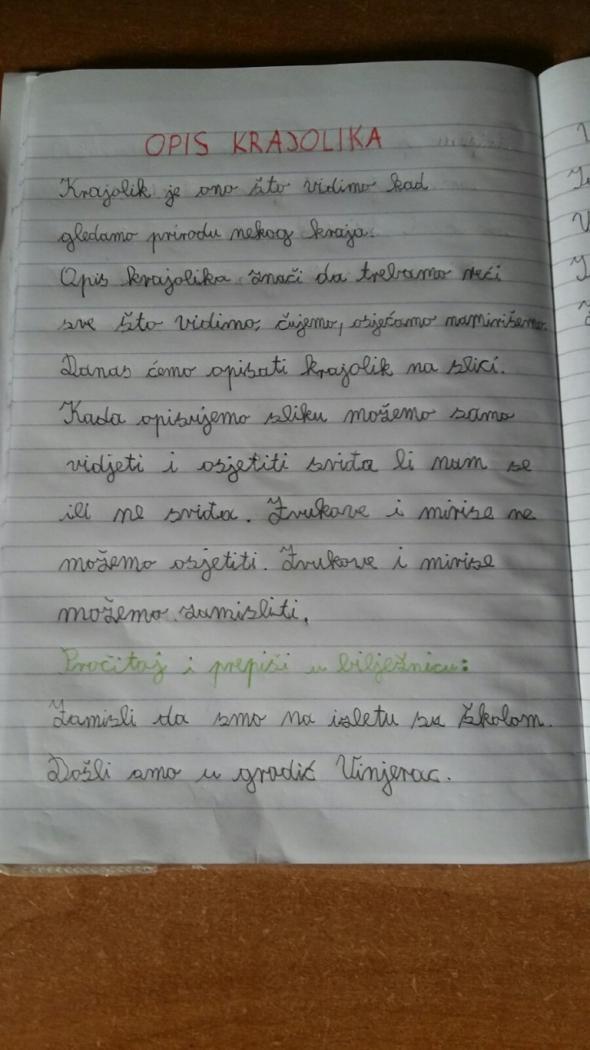 OPIS KRAJOLIKA
Krajolik je ono što vidimo kad
gledamo prirodu nekog kraja.
Opis krajolika znači da trebamo reći
sve što vidimo, čujemo, osjećamo namirišemo.
Danas ćemo opisati krajolik na slici.
Kada opisujemo sliku možemo samo
vidjeti i osjetiti sviđa li nam se
ili ne sviđa. Zvukove i mirise ne
možemo osjetiti. Zvukove i mirise
možemo zamisliti.
Pročitaj i prepiši u bilježnicu:
Zamisli da smo na izletu sa školom.
Došli smo u gradić Vinjerac.